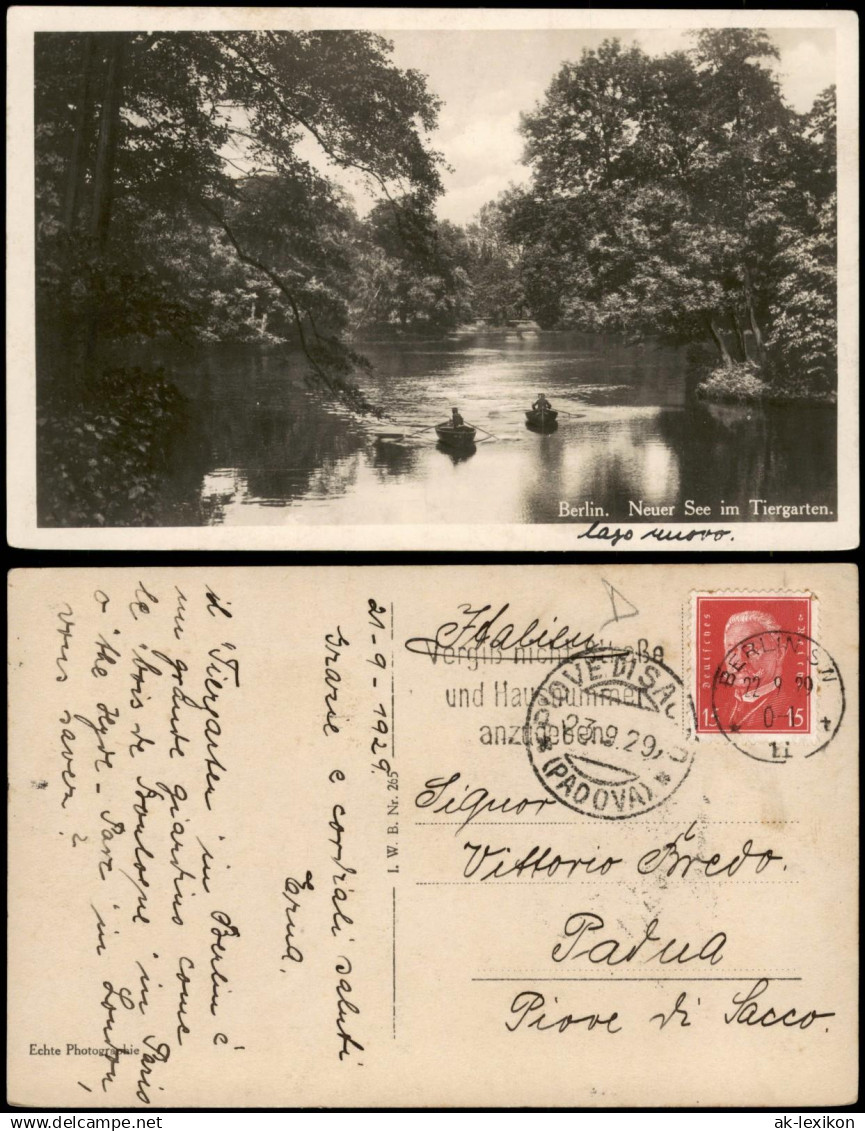 Berlin. Neuer See im Tiergarten.
lago nuovo.
il Tiergarten in Berlin è
un grande giardino come
le bois de Boulogne in Paris
o the Hyde-Parc in London,
vous saver?
21-9-1929.
Grazie e cordiali saluti
Erna.
Echte Photographie
I. W. B. Nr. 265
Italien
Vergiß nicht Straße
und Hausnummer
anzugeben
PIOVE DI SACCO
23.9.29
(PADOVA)
Deutsches Reich
15 15
BERLIN SN
22.9.29
11
Signor
Vittorio Bredo.
Padua
Piove di Sacco.
www.ak-lexikon.de
ak-lexikon